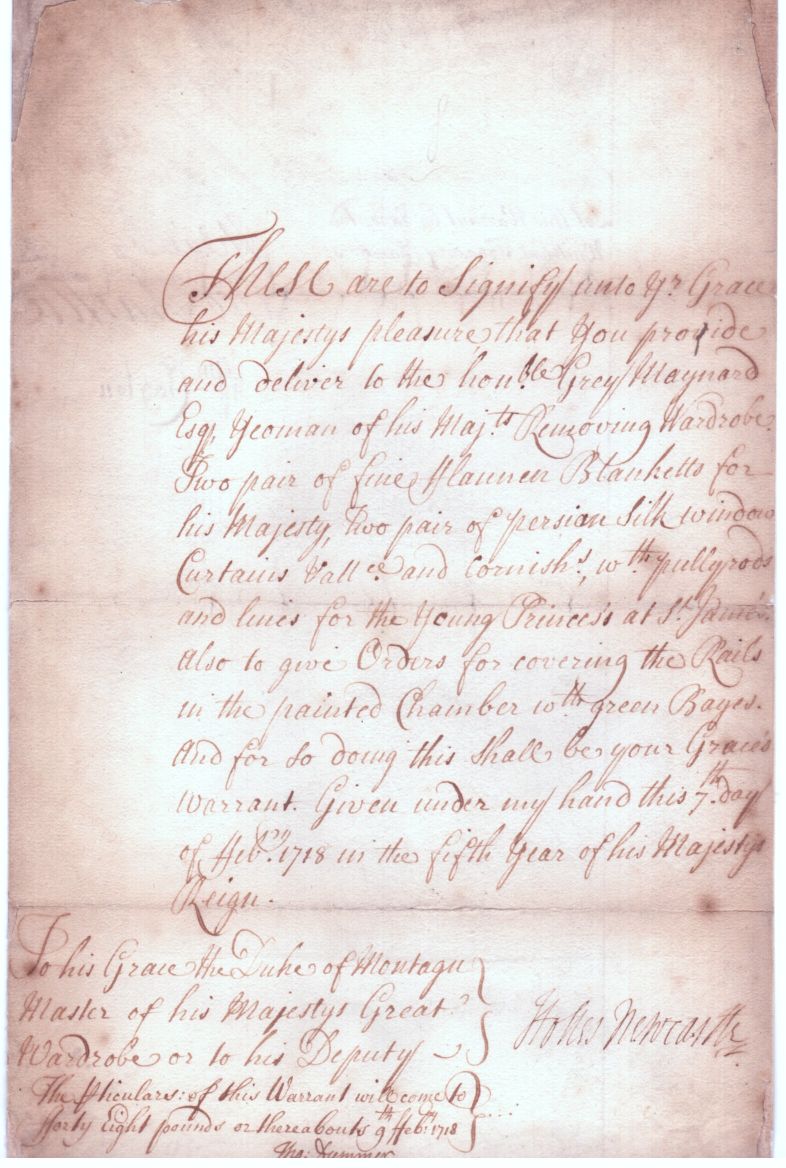 These are to Signify unto Yr. Grace
his Majestys pleasure that You provide
and deliver to the honble. Grey Maynard
Esq, Yeoman of his Majts. Removing Wardrobe.
Two pair of fine fflannen Blanketts for
his Majesty, Two pair of persian Silk window
Curtains Vallce. and Cornishs, wth. pullyrods
and lines for the Young Princess's at St. James's.
Also to give Orders for covering the Rails
in the painted Chamber wth green Bayes.
And for so doing this shall be your Grace's
Warrant. Given under my hand this 7th. day
of ffebry. 1718 in the fifth Year of his Majestys
Reign.
To his Grace the Duke of Montagu
Master of his Majestys Great
Wardrobe or to his Deputy
Holles Newcastle
The pticulars: of this Warrant will come to
fforty Eight pounds or thereabouts 9th ffebry. 1718
Tho: Dummer